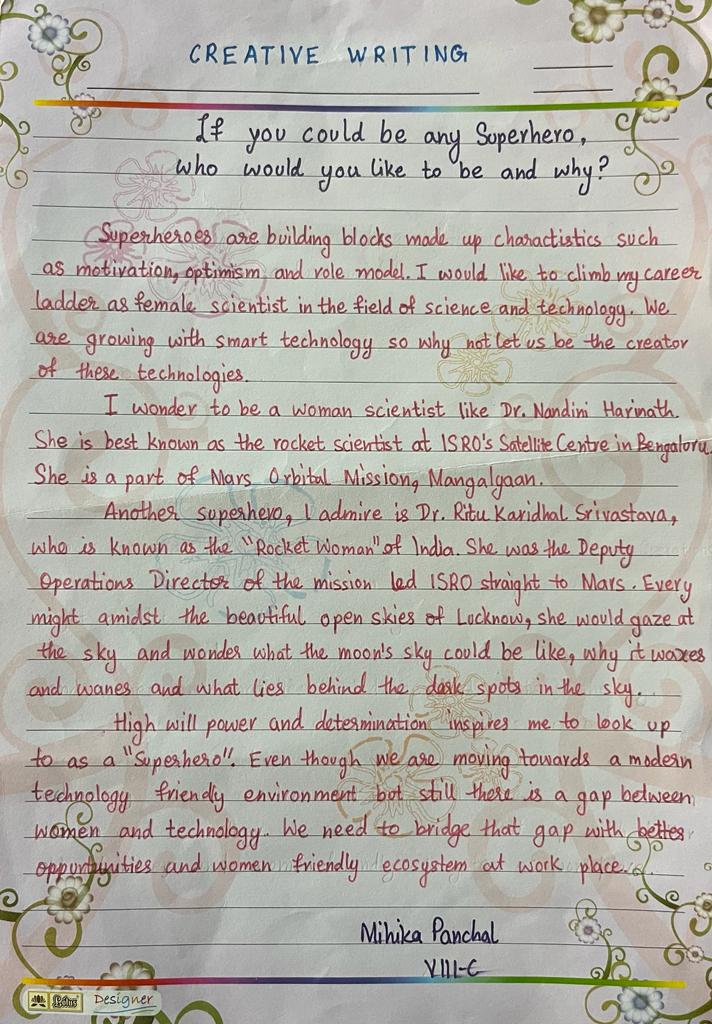 CREATIVE WRITING
If you could be any Superhero,
who would you like to be and why?
Superheroes are building blocks made up charactistics such
as motivation, optimism and role model. I would like to climb my career
ladder as female scientist in the field of science and technology. We
are growing with smart technology so why not let us be the creator
of these technologies.
I wonder to be a woman scientist like Dr. Nandini Harinath.
She is best known as the rocket scientist at ISRO's Satellite Centre in Bengaloru.
She is a part of Mars Orbital Mission, Mangalyaan.
Another superhero, I admire is Dr. Ritu Karidhal Srivastava,
who is known as the "Rocket Woman" of India. She was the Deputy
Operations Director of the mission led ISRO straight to Mars. Every
might amidst the beautiful open skies of Lucknow, she would gaze at
the sky and wonder what the moon's sky could be like, why it waxes
and wanes and what lies behind the dark spots in the sky.
High will power and determination inspires me to look up
to as a "Superhero". Even though we are moving towards a modern
technology friendly environment but still there is a gap between
women and technology. We need to bridge that gap with better
oppurtunities and women friendly ecosystem at work place.
Mihika Panchal
VIII-C
Lotus Designer